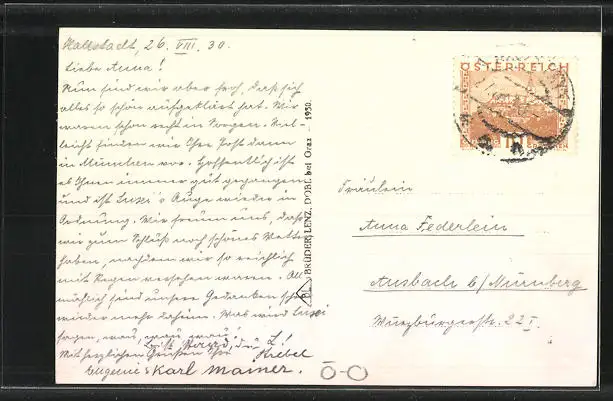 Hallstadt, 26. VIII. 30.
Liebe Anna!
Nun sind wir aber froh, daß sich
alles so schön aufgeklärt hat. Wir
waren schon recht in Sorgen. Viel-
leicht finden wir Ihre Post dann
in München vor. Hoffentlich ist
es Ihnen immer gut gegangen
und ist Luxi's Auge wieder in
Ordnung. Wir freuen uns, daß
wir zum Schluß noch schönes Wetter
haben, nachdem wir so reichlich
mit Regen versehen waren. All-
mählich sind unsere Gedanken schon
wieder mehr daheim. Was wird Luxi
sagen, wau, wau wau!
Mit herzlichen Grüßen Ihre
Eugenie & Karl Mainer.
BRÜDER LENZ, DOBL bei Graz — 1930.
ÖSTERREICH
Fräulein
Anna Federlein
Ansbach b/Nürnberg
Würzburgerstr. 22 I
O-O